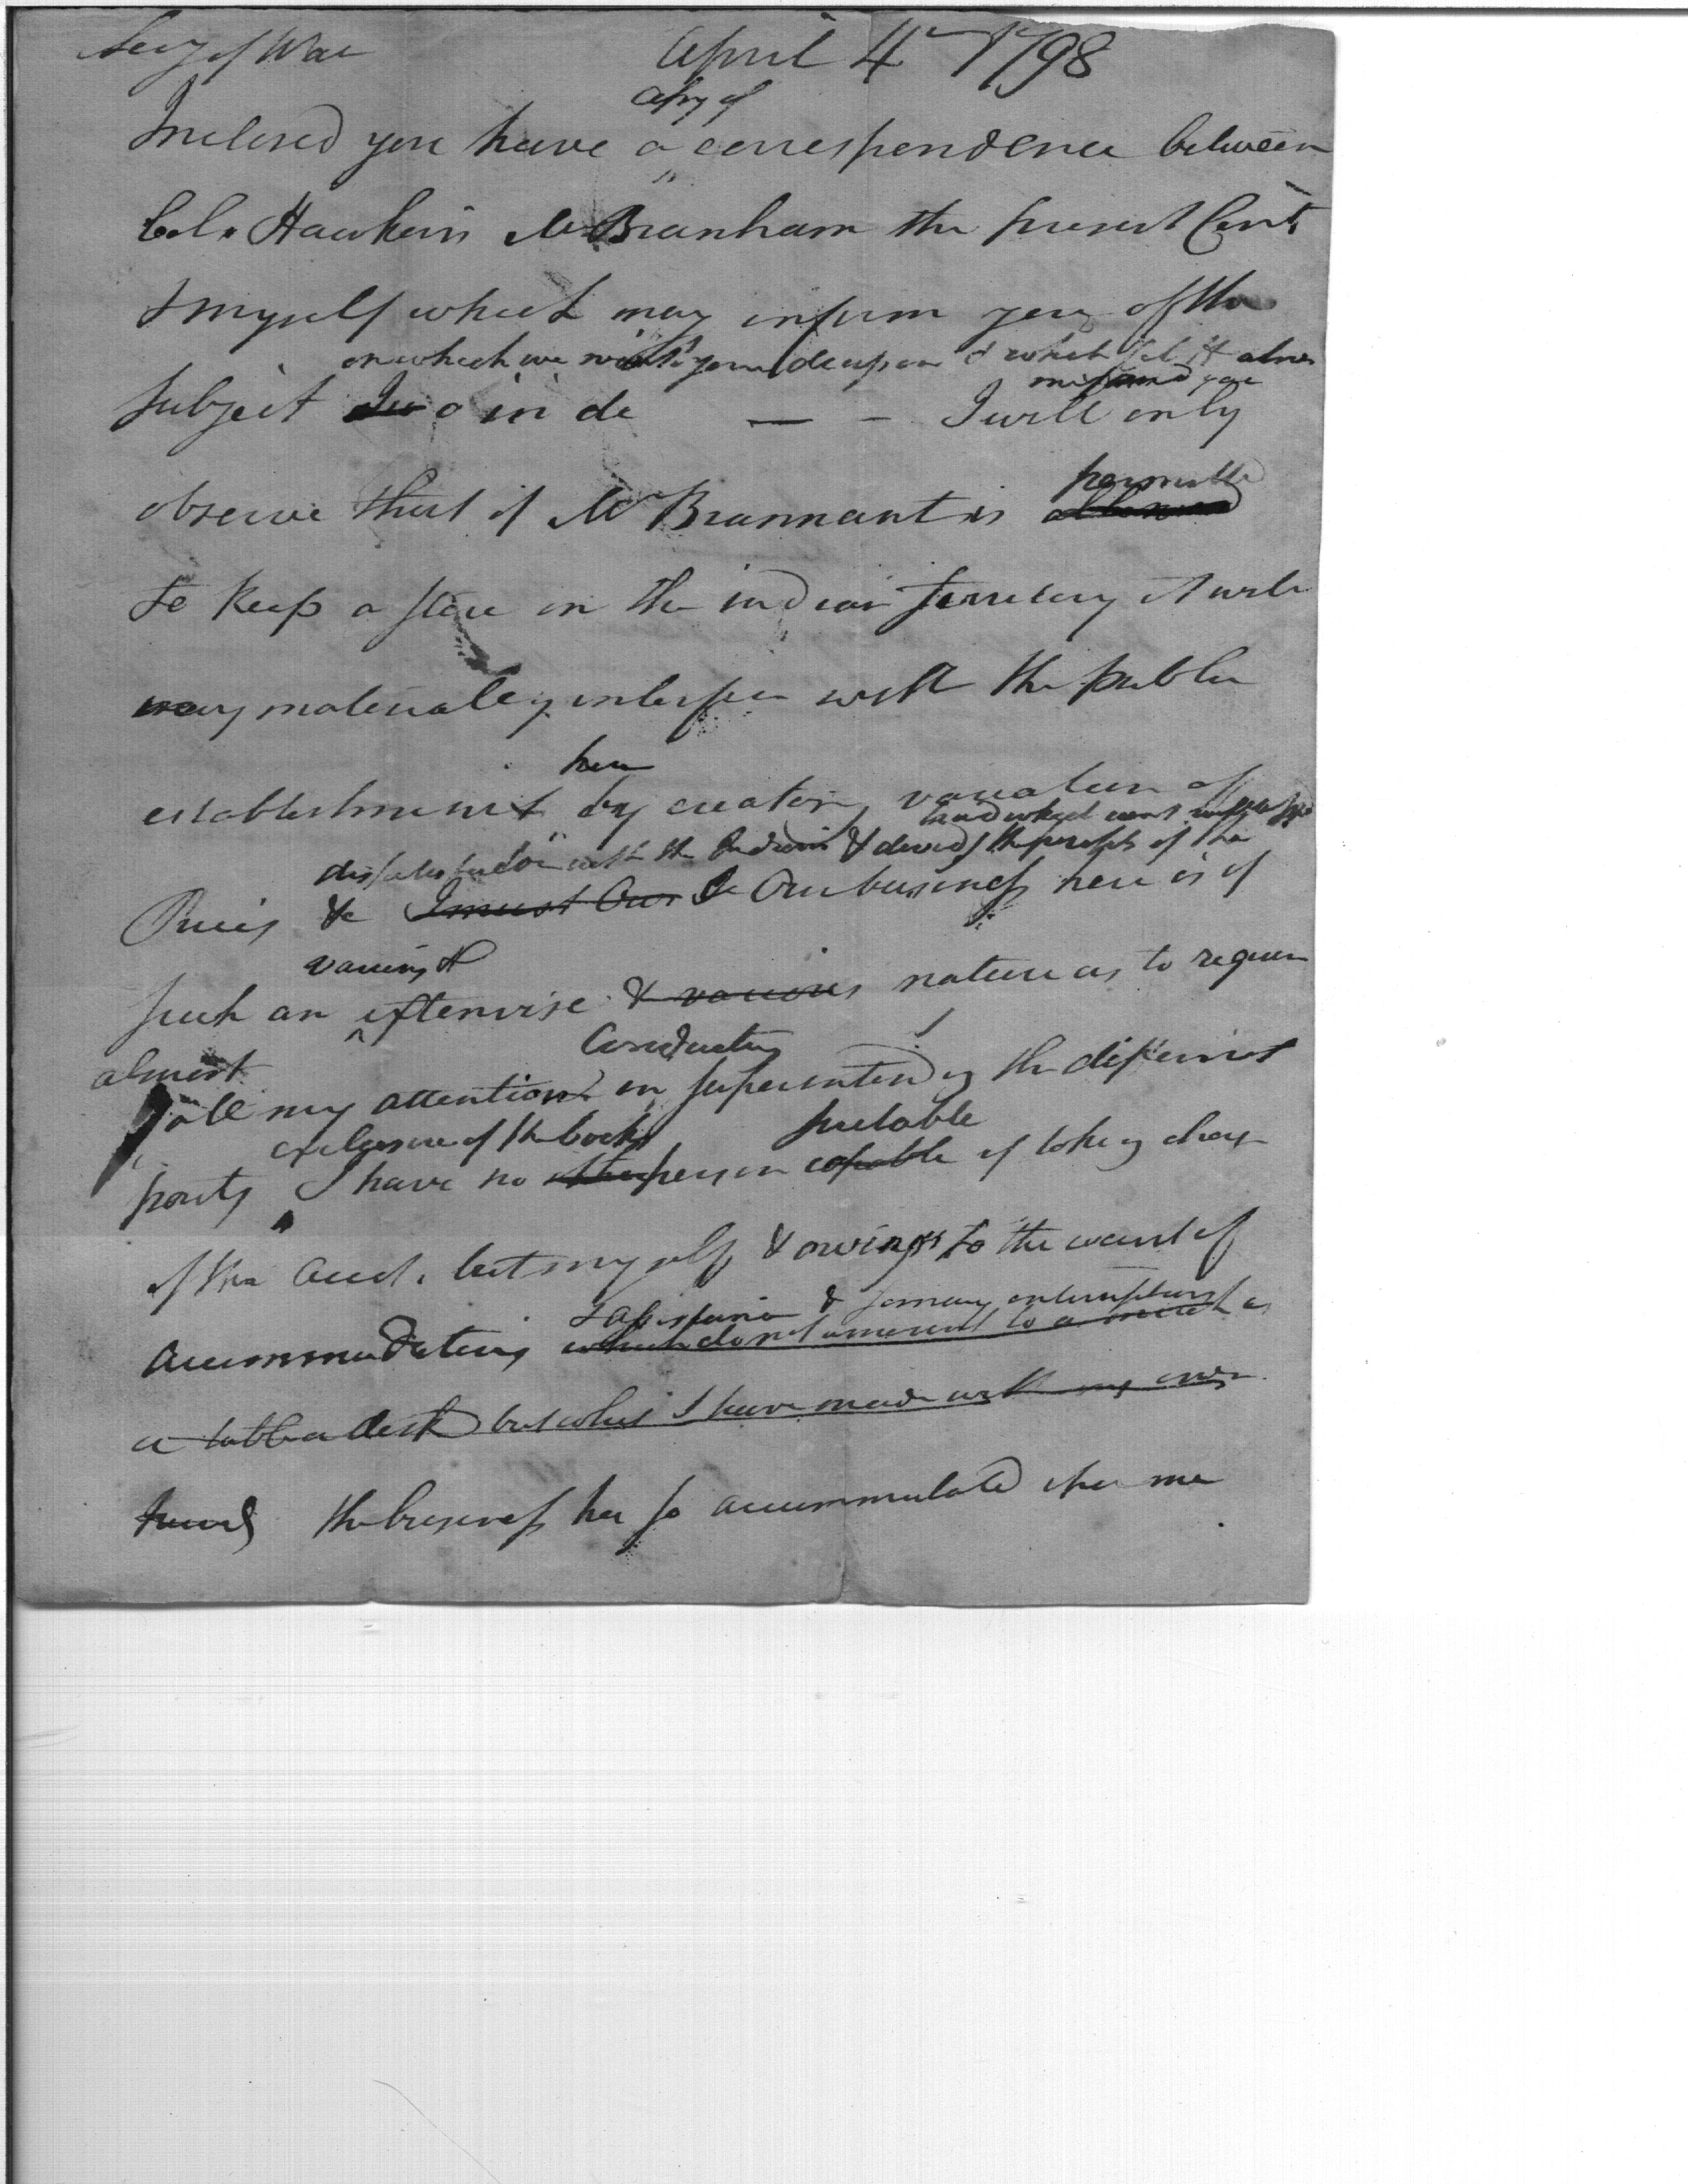 Secy of War April 4th 1798
copy of
Inclosed you have a correspondence between
Col. Hawkins Mr Branham the present Cont
& myself which may inform you of the
on which we your & which
subject in de — - I will only
observe that if Mr Brannant is permitted
allowed
to keep a store in the indian Terretory it will
very materially interfer with the public
here
establishment by creating variation of
dissatisfaction with the Indians & the people of the
Prices &c I must Our business here is of
various &
such an extenvise & various nature as to requier
almost Conducting
all my attention in superintending the different
exclusive of the books suitable
parts I have no other person capable of taking charge
of the acct. but myself & owing to the want of
& so many interruptions
accommodations which do not amount to as much as
a table or desk but what I have made with my own
hands the business has so accummulated upon me